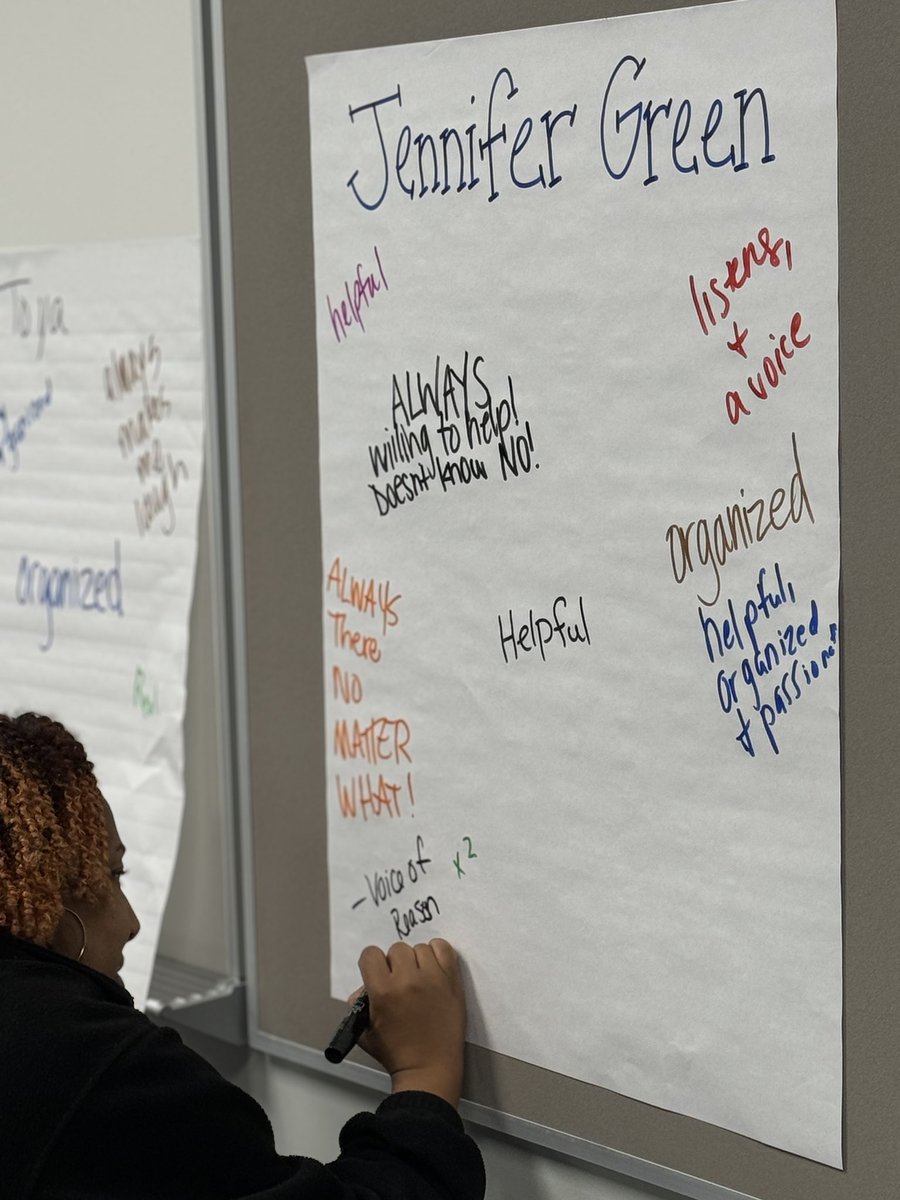 Jennifer Green
helpful
listens,
+
a voice
ALWAYS
willing to help!
Doesn't know NO!
organized
ALWAYS
There
NO
MATTER
WHAT!
Helpful
helpful,
organized
+ passionate
- Voice of
Reason
x²
Toya
always
makes
me
laugh
organized
organized